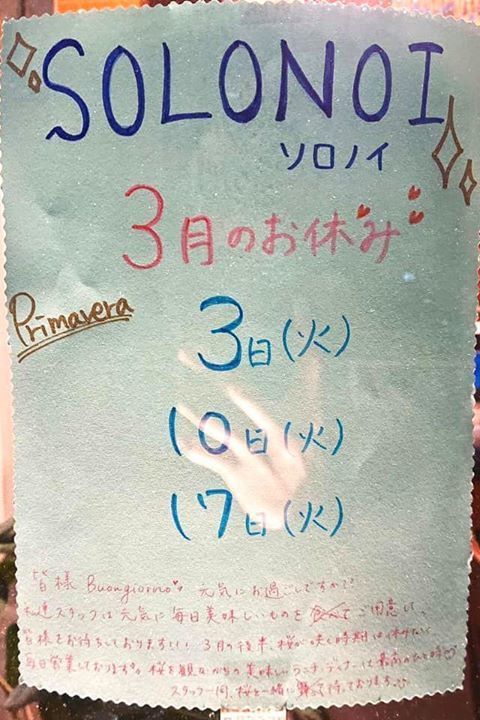 SOLONOI
ソロノイ
3月のお休み
Primavera
3日(火)
10日(火)
17日(火)
皆様 Buongiorno 元気にお過ごしですか?
私達スタッフは元気に毎日美味しいものを 食べて ご用意して
皆様をお待ちしております!!! 3月の後半、桜が咲く時期は休みなく
毎日営業しております。桜を観ながらの美味しいランチ、ディナーは最高のひと時
スタッフ一同、桜と一緒に 待っております